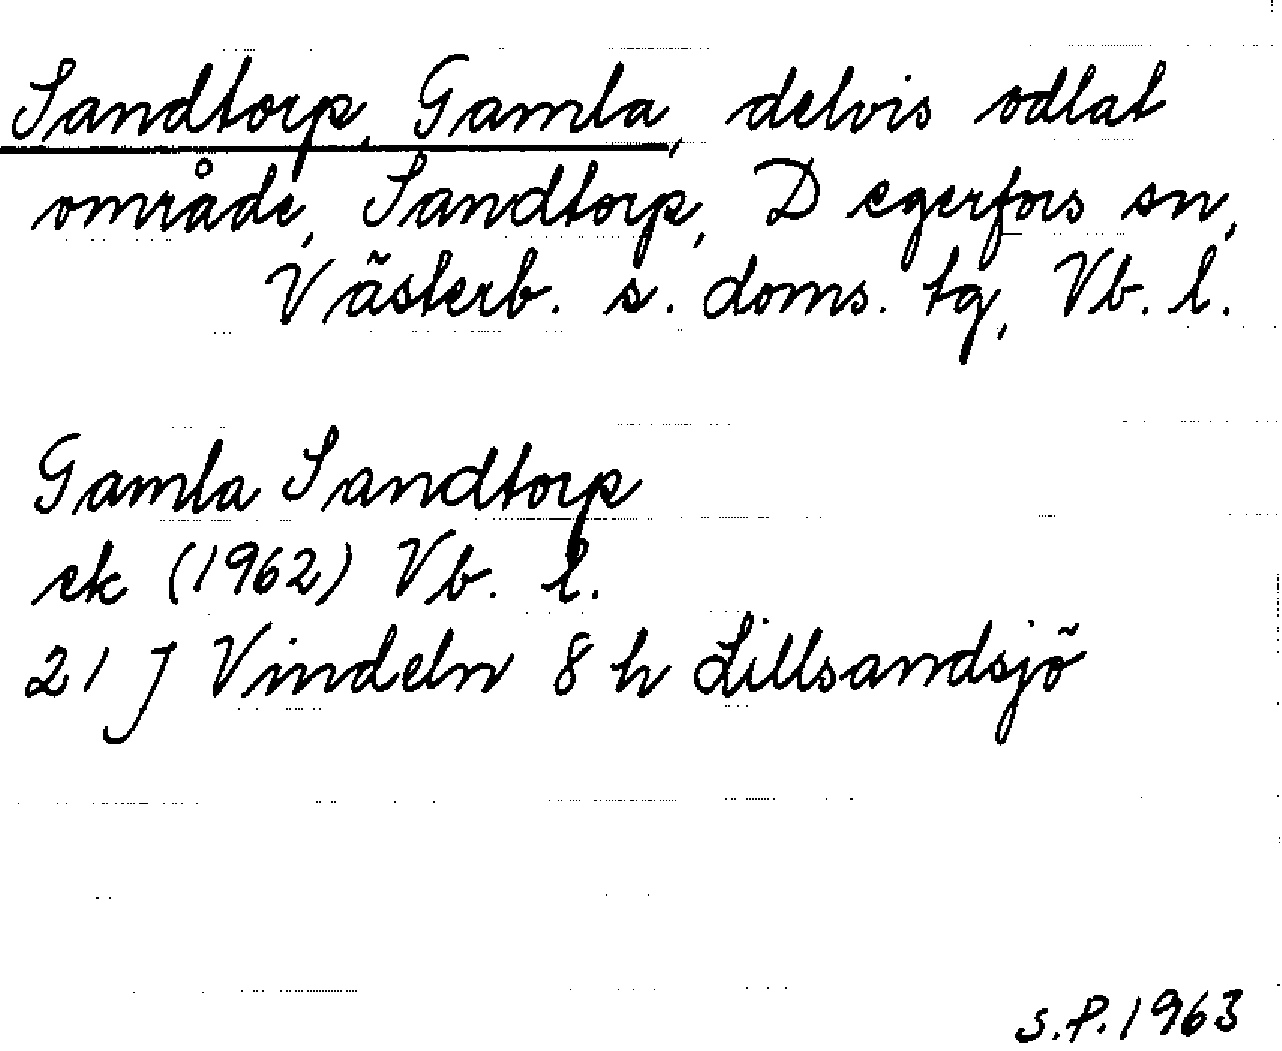 Sandtorp, Gamla, delvis odlat
område, Sandtorp, Degerfors sn,
Västerb. s. doms. tg, Vb. l.
Gamla Sandtorp
ek (1962) Vb. l.
21 J Vindeln 8 h Lillsandsjö
S.P. 1963